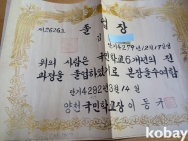 제262호
졸업장
단기4279년12월19일생
위의 사람은 국민학교6개년의 전
과정을 졸업하였기로 본장을수여함
단기4282년 3월 14일
양천 국민학교장 이동규
kobay